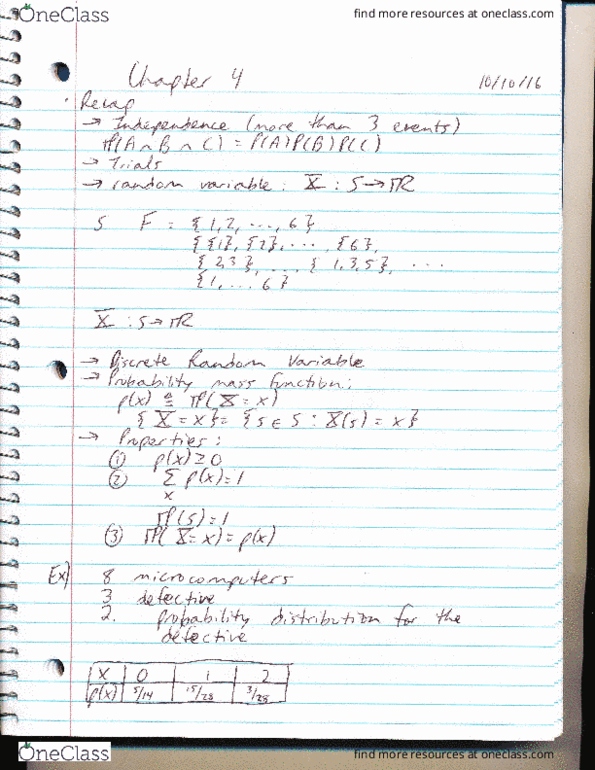 OneClass
find more resources at oneclass.com
Chapter 4
10/10/16
· Recap
→ Independence (more than 3 events)
ℙ(A ∩ B ∩ C) = P(A)P(B)P(C)
→ Trials
→ random variable : X : S → ℝ
S F = { 1, 2, ..., 6 }
{ {1}, {2}, ... , {6},
{ 2,3 }, ..., { 1,3,5 }, ...
{ 1, ... 6 }
X : S → ℝ
→ Discrete Random Variable
→ Probability mass function:
p(x) ≙ ℙ(X = x)
{ X = x } = { s ∈ S : X(s) = x }
→ Properties :
① p(x) ≥ 0
② Σ p(x) = 1
x
ℙ(S) = 1
③ ℙ(X = x) = p(x)
Ex) 8 microcomputers
3 defective
2. probability distribution for the
defective
X 0 1 2
p(x) 5/14 15/28 3/28
OneClass
find more resources at oneclass.com